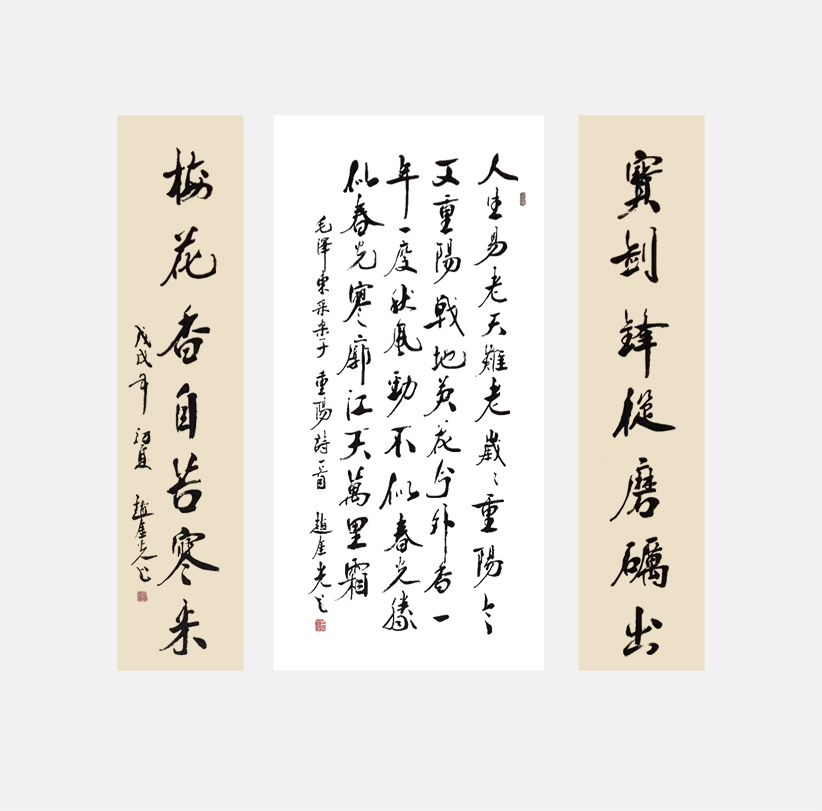 寶劍鋒從磨礪出
人生易老天難老歲々重陽今
又重陽戰地黃花分外香一
年一度秋風勁不似春光勝
似春光寥廓江天萬里霜
毛澤東采桑子 重陽詩一首 趙奎光
梅花香自苦寒來
戊戌年 初夏 趙奎光